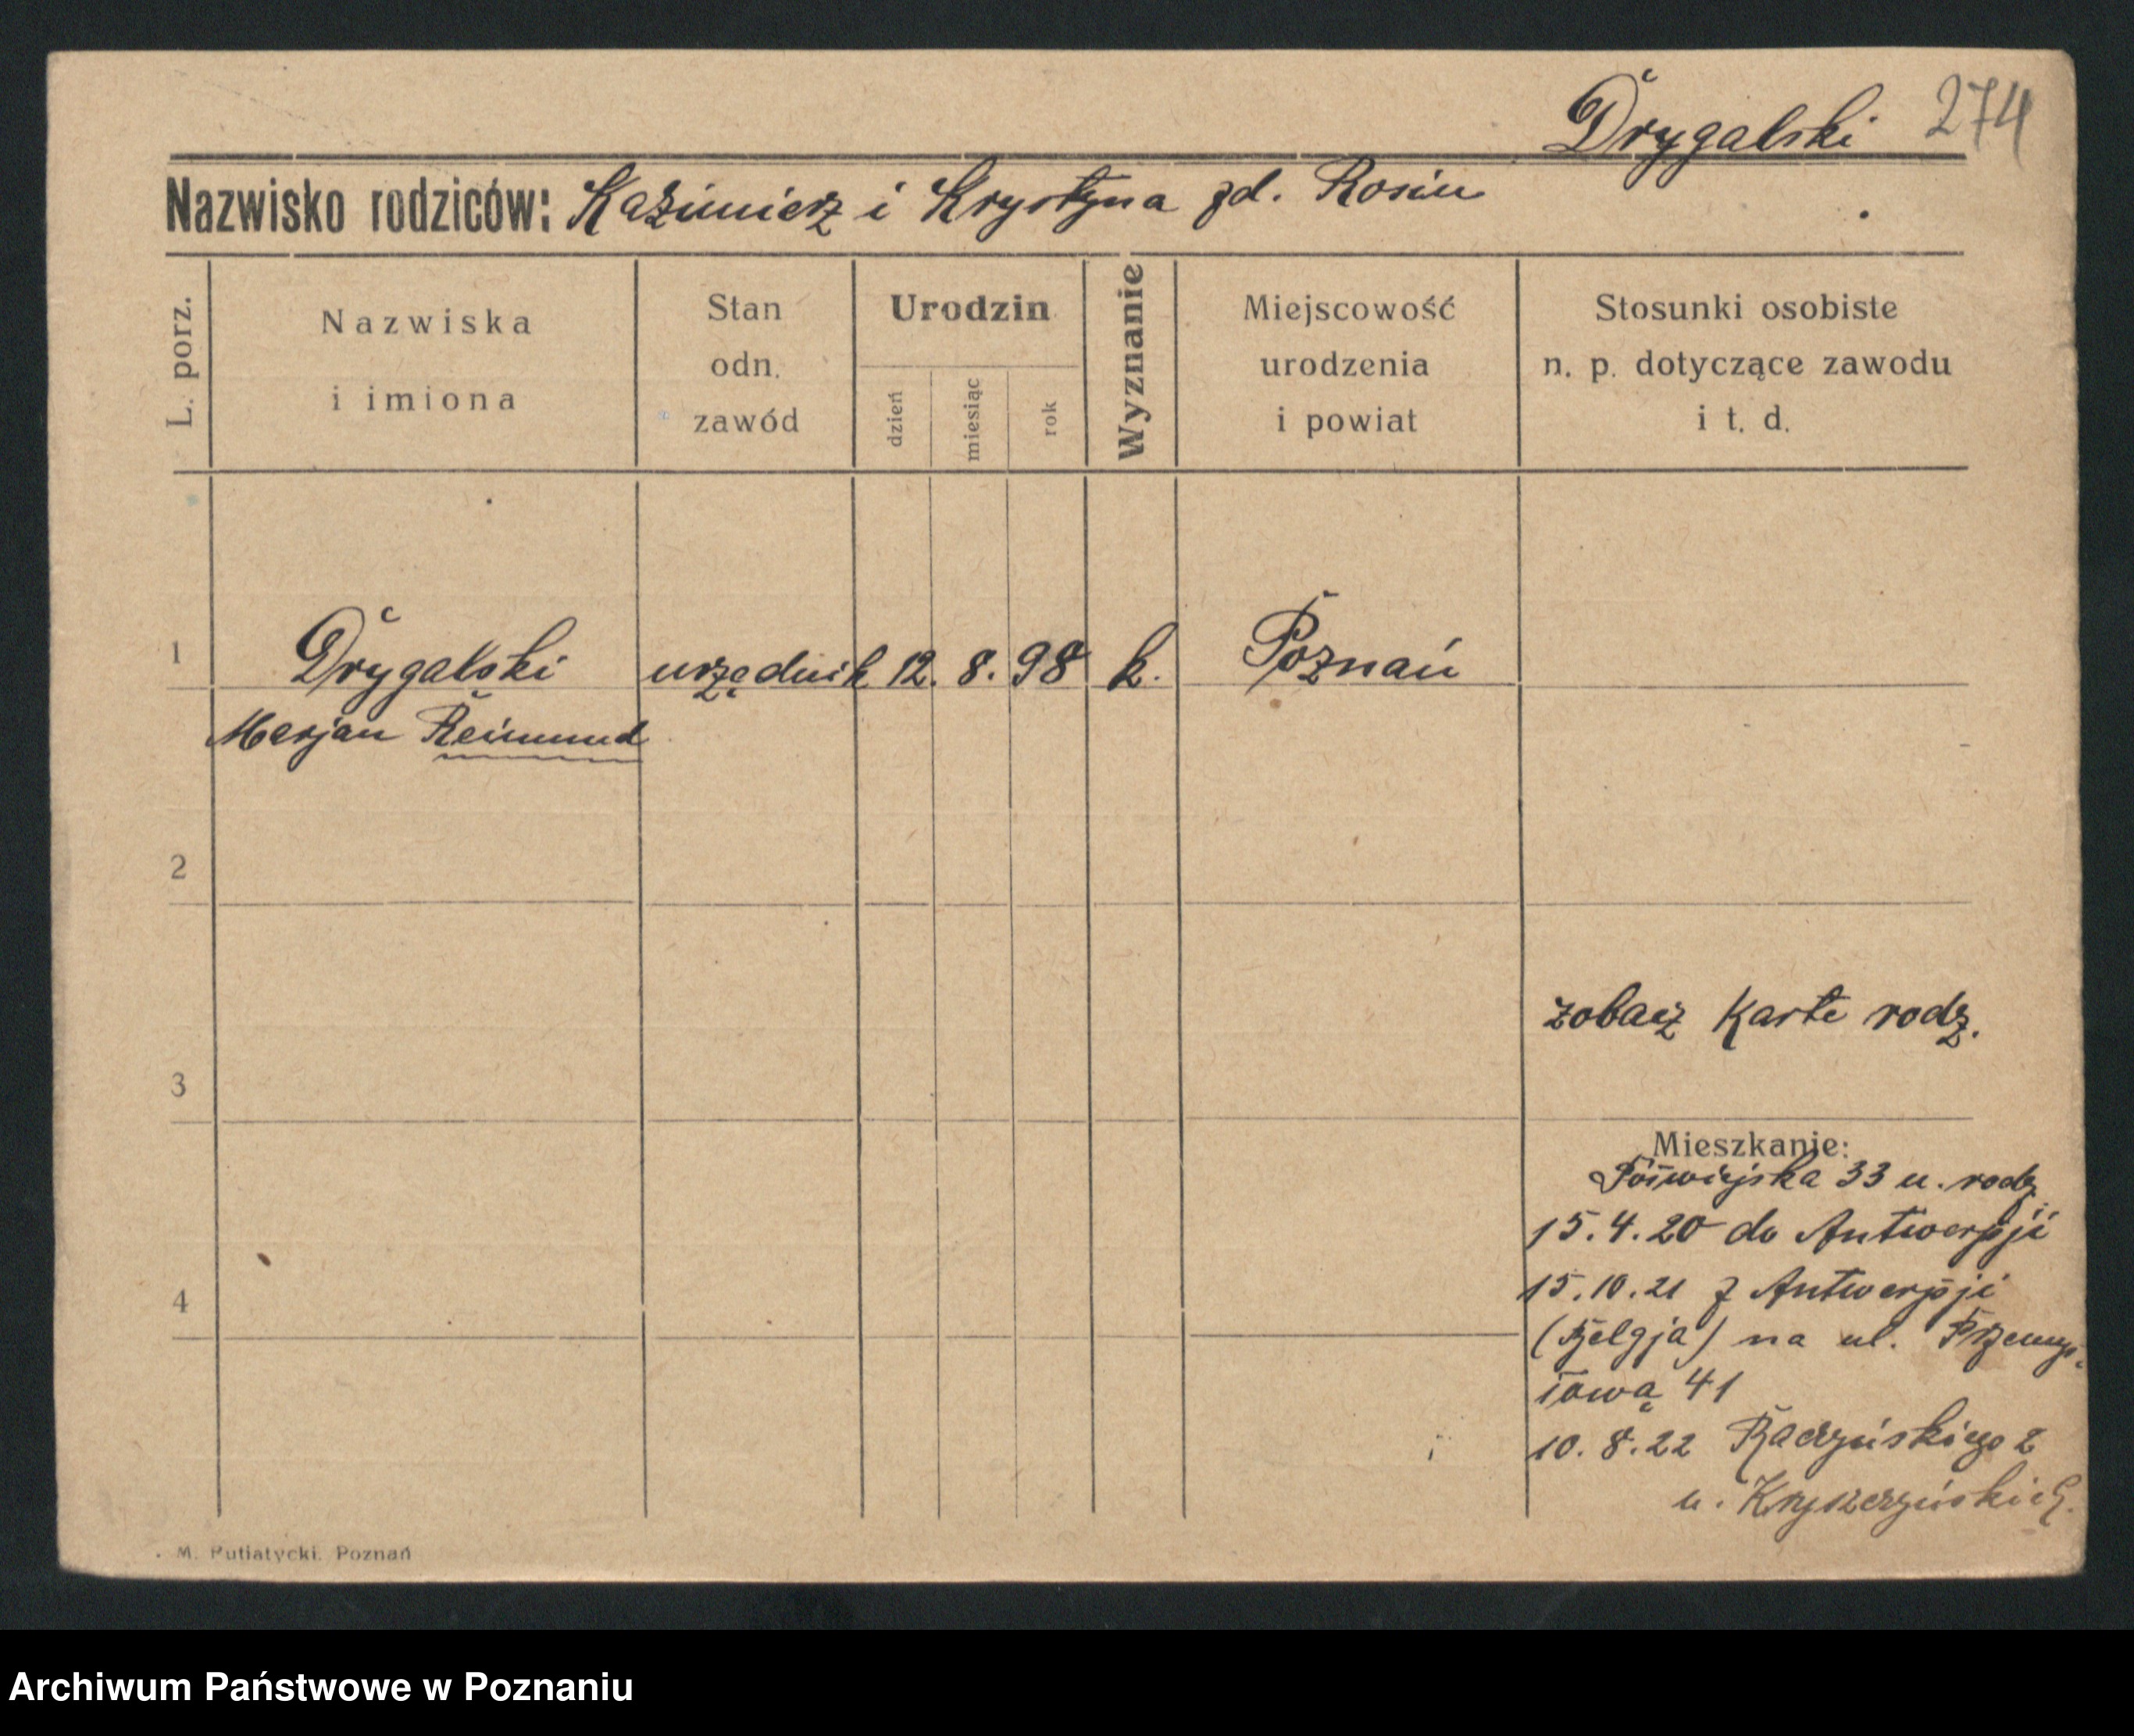 Drygalski 274
Nazwisko rodziców: Kazimierz i Krystyna zd. Rosin
L. porz.
Nazwiska
i imiona
Stan
odn.
zawód
Urodzin
dzień
miesiąc
rok
Wyznanie
Miejscowość
urodzenia
i powiat
Stosunki osobiste
n. p. dotyczące zawodu
i t. d.
1 Drygalski urzędnik 12. 8. 98 k. Poznań
Marjan Reimund
2
zobacz Karte rodz.
3
Mieszkanie:
Półwiejska 33 u. rodz.
15.4.20 do Antwerpji
15.10.21 z Antwerpji
4
(Belgja) na ul. Przemys-
łową 41
10.8.22 Raczyńskiego 2
u.
M. Putiatycki. Poznań
Archiwum Państwowe w Poznaniu